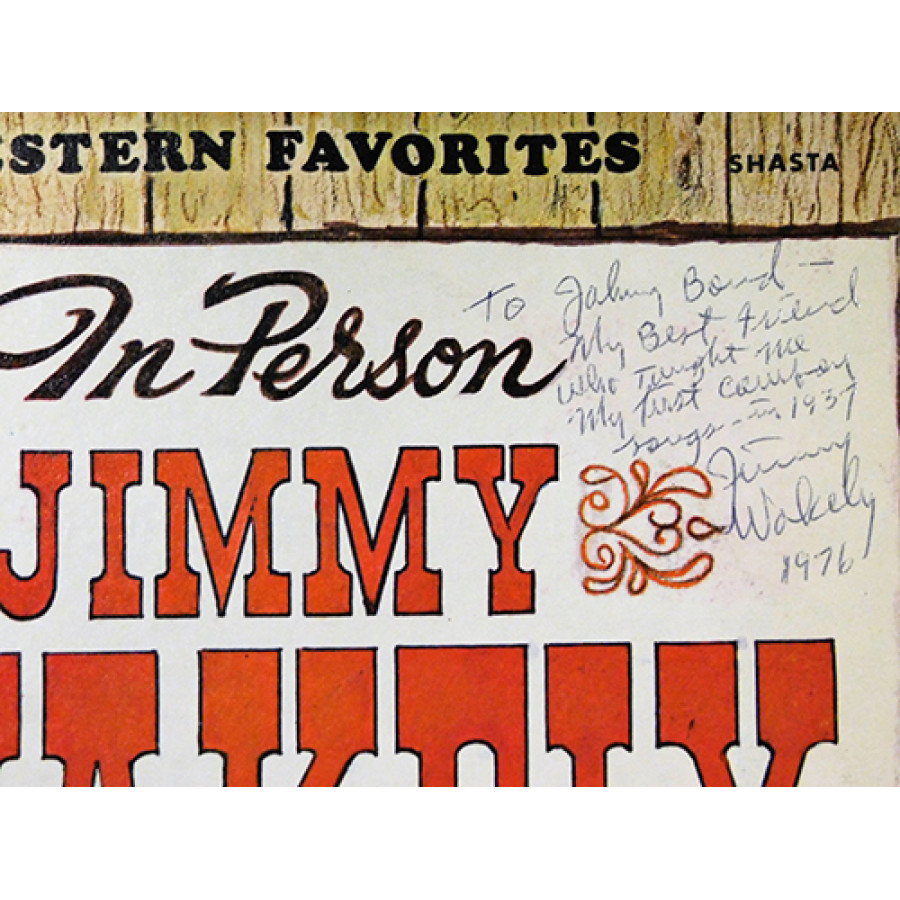 STERN FAVORITES
SHASTA
In Person
JIMMY
WAKELY
To Johnny Bond —
My Best Friend
who Taught me
My first Cowboy
songs - in 1937
Jimmy
Wakely
1976